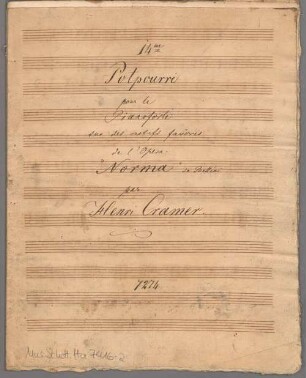 14me
Potpourri
pour le
Pianoforte
sur des motifs favoris
de l'Opera
Norma de Bellini
par
Henri Cramer.
7274